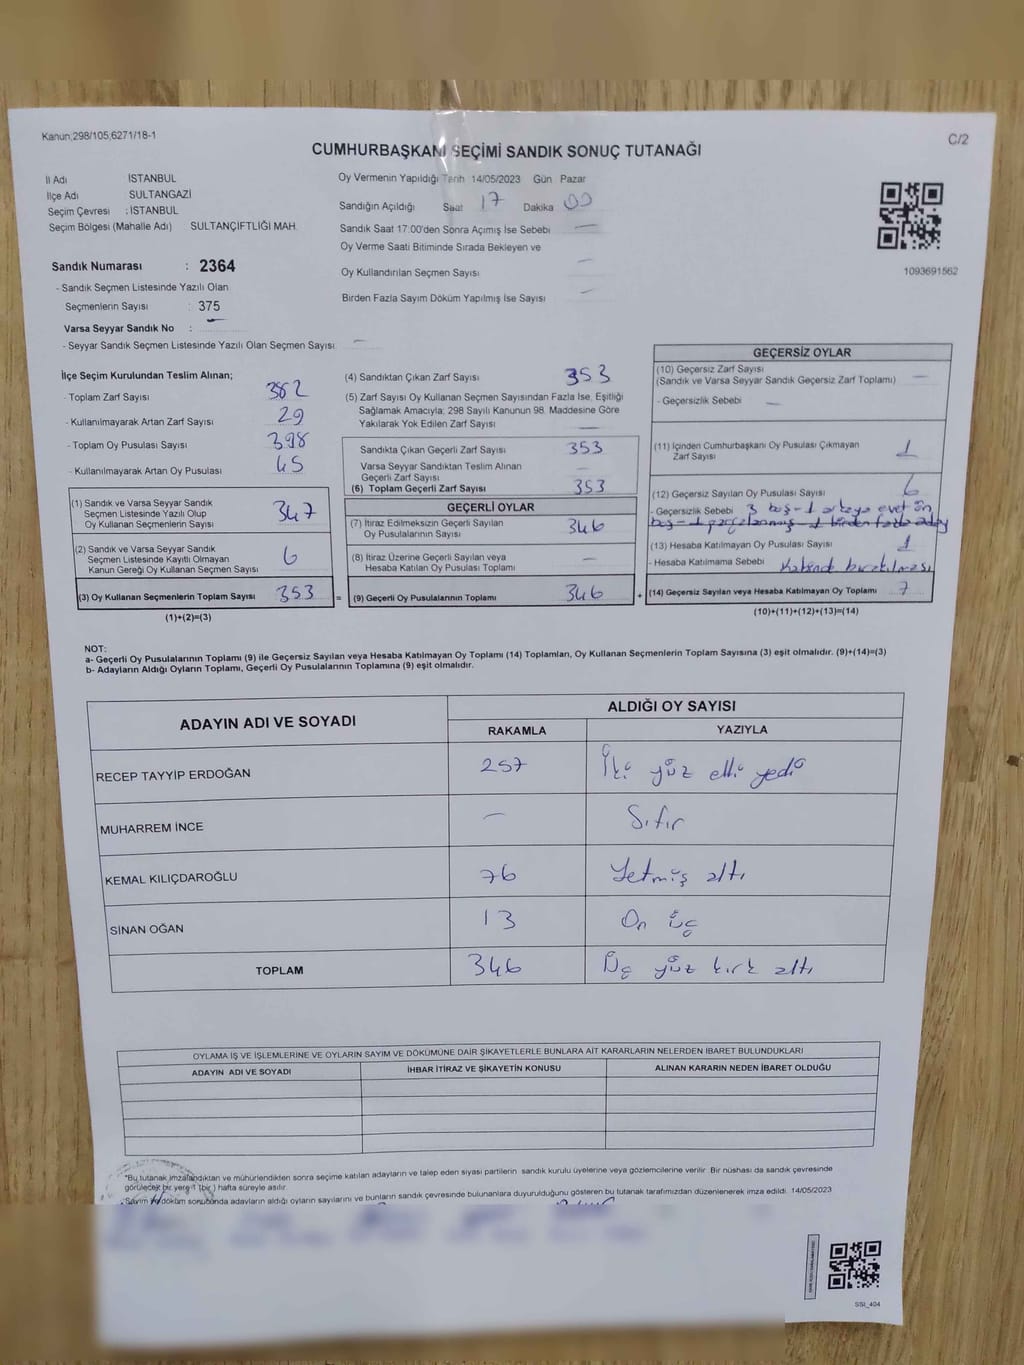 Kanun;298/105;6271/18-1
C/2
CUMHURBAŞKANI SEÇİMİ SANDIK SONUÇ TUTANAĞI
İl Adı İSTANBUL
İlçe Adı SULTANGAZİ
Seçim Çevresi : İSTANBUL
Seçim Bölgesi (Mahalle Adı) SULTANÇİFTLİĞİ MAH.
Sandık Numarası : 2364
- Sandık Seçmen Listesinde Yazılı Olan
Seçmenlerin Sayısı : 375
Varsa Seyyar Sandık No : —
- Seyyar Sandık Seçmen Listesinde Yazılı Olan Seçmen Sayısı —
Oy Vermenin Yapıldığı Tarih 14/05/2023 Gün Pazar
Sandığın Açıldığı Saat 17 Dakika 00
Sandık Saat 17:00'den Sonra Açımış İse Sebebi —
Oy Verme Saati Bitiminde Sırada Bekleyen ve
Oy Kullandırılan Seçmen Sayısı —
Birden Fazla Sayım Döküm Yapılmış İse Sayısı —
1093691562
İlçe Seçim Kurulundan Teslim Alınan;
- Toplam Zarf Sayısı 382
- Kullanılmayarak Artan Zarf Sayısı 29
- Toplam Oy Pusulası Sayısı 398
- Kullanılmayarak Artan Oy Pusulası 45
(1) Sandık ve Varsa Seyyar Sandık
Seçmen Listesinde Yazılı Olup
Oy Kullanan Seçmenlerin Sayısı 347
(2) Sandık ve Varsa Seyyar Sandık
Seçmen Listesinde Kayıtlı Olmayan
Kanun Gereği Oy Kullanan Seçmen Sayısı 6
(3) Oy Kullanan Seçmenlerin Toplam Sayısı 353 =
(1)+(2)=(3)
(4) Sandıktan Çıkan Zarf Sayısı 353
(5) Zarf Sayısı Oy Kullanan Seçmen Sayısından Fazla İse, Eşitliği
Sağlamak Amacıyla; 298 Sayılı Kanunun 98. Maddesine Göre
Yakılarak Yok Edilen Zarf Sayısı —
Sandıkta Çıkan Geçerli Zarf Sayısı 353
Varsa Seyyar Sandıktan Teslim Alınan
Geçerli Zarf Sayısı —
(6) Toplam Geçerli Zarf Sayısı 353
GEÇERLİ OYLAR
(7) İtiraz Edilmeksizin Geçerli Sayılan
Oy Pusulalarının Sayısı 346
(8) İtiraz Üzerine Geçerli Sayılan veya
Hesaba Katılan Oy Pusulası Toplamı —
(9) Geçerli Oy Pusulalarının Toplamı 346 +
GEÇERSİZ OYLAR
(10) Geçersiz Zarf Sayısı
(Sandık ve Varsa Seyyar Sandık Geçersiz Zarf Toplamı) —
- Geçersizlik Sebebi —
(11) İçinden Cumhurbaşkanı Oy Pusulası Çıkmayan
Zarf Sayısı 1
(12) Geçersiz Sayılan Oy Pusulası Sayısı 6
- Geçersizlik Sebebi 3 boş - 1 arkaya evet ön
boş - 1 parçalanmış - 1 birden fazla aday
(13) Hesaba Katılmayan Oy Pusulası Sayısı 1
- Hesaba Katılmama Sebebi Kabinde bırakılması
(14) Geçersiz Sayılan veya Hesaba Katılmayan Oy Toplamı 7
(10)+(11)+(12)+(13)=(14)
NOT:
a- Geçerli Oy Pusulalarının Toplamı (9) ile Geçersiz Sayılan veya Hesaba Katılmayan Oy Toplamı (14) Toplamları, Oy Kullanan Seçmenlerin Toplam Sayısına (3) eşit olmalıdır. (9)+(14)=(3)
b- Adayların Aldığı Oyların Toplamı, Geçerli Oy Pusulalarının Toplamına (9) eşit olmalıdır.
ADAYIN ADI VE SOYADI ALDIĞI OY SAYISI
RAKAMLA YAZIYLA
RECEP TAYYİP ERDOĞAN 257 İki yüz elli yedi
MUHARREM İNCE — Sıfır
KEMAL KILIÇDAROĞLU 76 Yetmiş altı
SİNAN OĞAN 13 On üç
TOPLAM 346 Üç yüz kırk altı
OYLAMA İŞ VE İŞLEMLERİNE VE OYLARIN SAYIM VE DÖKÜMÜNE DAİR ŞİKAYETLERLE BUNLARA AİT KARARLARIN NELERDEN İBARET BULUNDUKLARI
ADAYIN ADI VE SOYADI İHBAR İTİRAZ VE ŞİKAYETİN KONUSU ALINAN KARARIN NEDEN İBARET OLDUĞU
*Bu tutanak imzalandıktan ve mühürlendikten sonra seçime katılan adayların ve talep eden siyasi partilerin sandık kurulu üyelerine veya gözlemcilerine verilir. Bir nüshası da sandık çevresinde
görülecek bir yere 1 (bir) hafta süreyle asılır.
Sayım ve döküm sonucunda adayların aldığı oyların sayılarını ve bunların sandık çevresinde bulunanlara duyurulduğunu gösteren bu tutanak tarafımızdan düzenlenerek imza edildi. 14/05/2023
SSI_404